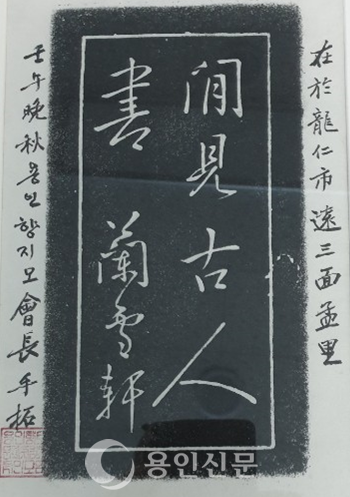 在於龍仁市遠三面孟里
閒見古人
書 蘭雪軒
壬午晩秋용인향지모會長手拓
용인신문